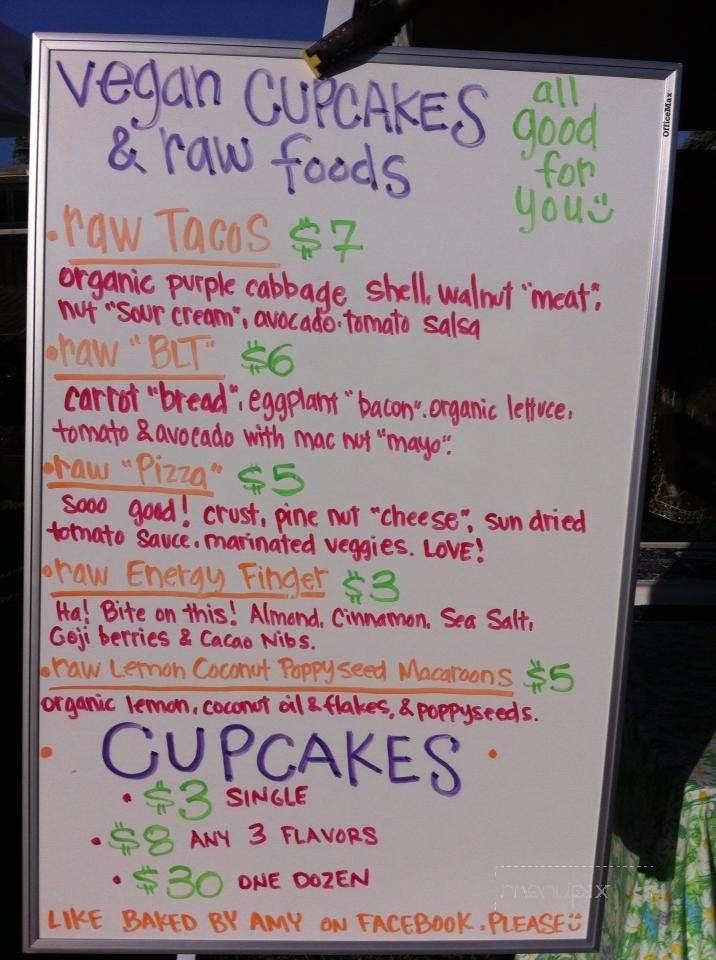 vegan CUPCAKES
& raw foods
all
good
for
you
OfficeMax
• raw Tacos $7
organic purple cabbage shell, walnut "meat",
nut "sour cream", avocado·tomato salsa
• raw "BLT" $6
carrot "bread", eggplant "bacon". organic lettuce,
tomato & avocado with mac nut "mayo".
• raw "Pizza" $5
Sooo good! crust, pine nut "cheese", sun dried
tomato sauce, marinated veggies. LOVE!
• raw Energy Finger $3
Ha! Bite on this! Almond, Cinnamon, Sea Salt,
Goji berries & Cacao Nibs.
• raw Lemon Coconut Poppyseed Macaroons $5
organic lemon, coconut oil & flakes, & poppyseeds.
• CUPCAKES •
• $3 SINGLE
• $8 ANY 3 FLAVORS
• $30 ONE DOZEN
LIKE BAKED BY AMY ON FACEBOOK. PLEASE
menupix